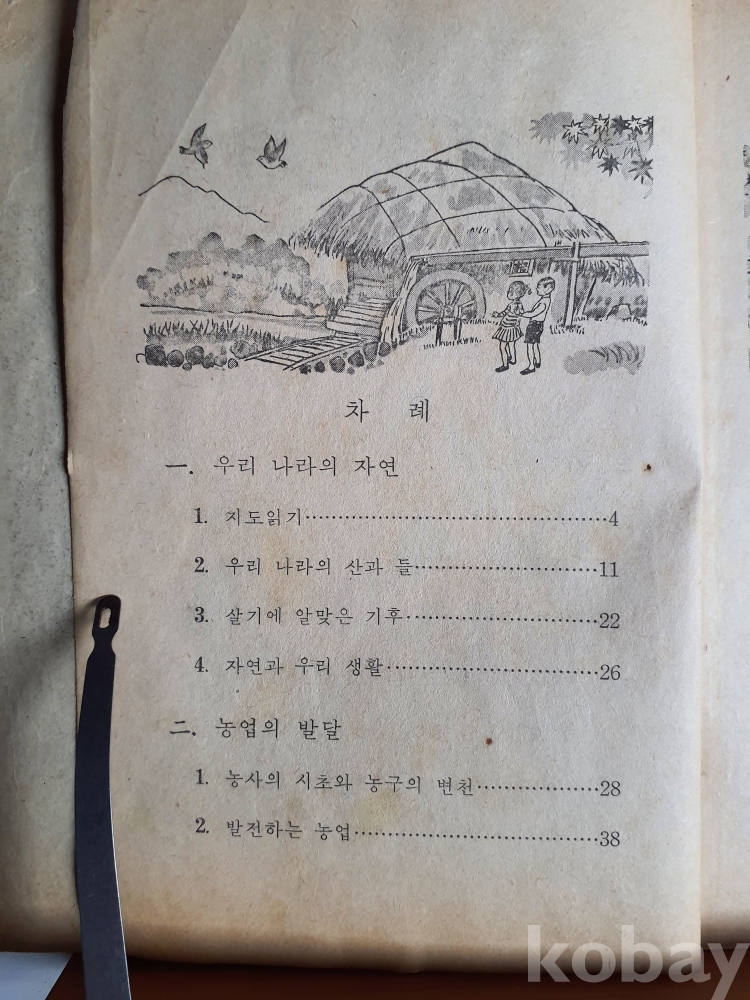 차 례
一. 우리 나라의 자연
1. 지도읽기……………………………………4
2. 우리 나라의 산과 들……………………11
3. 살기에 알맞은 기후………………………22
4. 자연과 우리 생활…………………………26
二. 농업의 발달
1. 농사의 시초와 농구의 변천………………28
2. 발전하는 농업……………………………38
kobay